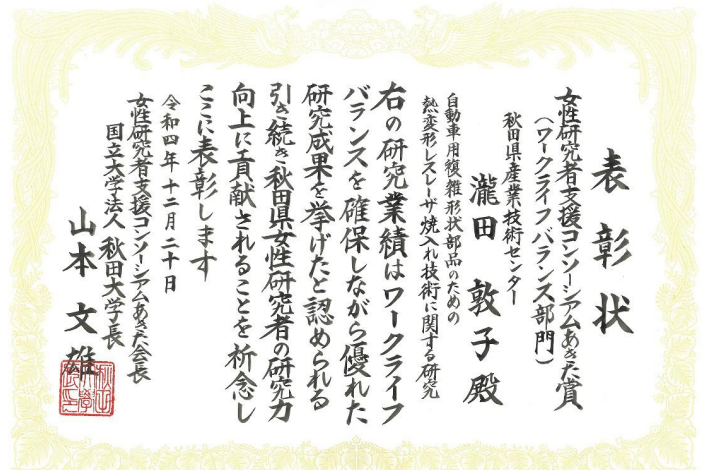 表彰状
女性研究者支援コンソーシアムあきた賞
(ワークライフバランス部門)
秋田県産業技術センター
瀧田 敦子 殿
自動車用複雑形状部品のための
熱変形レスレーザ焼入れ技術に関する研究
右の研究業績はワークライフ
バランスを確保しながら優れた
研究成果を挙げたと認められる
引き続き秋田県女性研究者の研究力
向上に貢献されることを祈念し
ここに表彰します
令和四年十二月二十日
女性研究者支援コンソーシアムあきた会長
国立大学法人 秋田大学長
山本 文雄